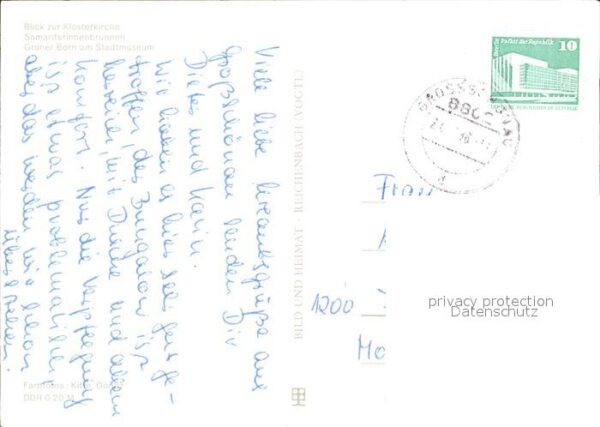 Blick zur Klosterkirche
Samariterinnenbrunnen
Grüner Born am Stadtmuseum
Viele liebe Urlaubsgrüße aus
Großschönau senden Dir
Dieter und Karin.
Wir haben es hier sehr gut ge-
troffen, der Bungalow ist
bestens, mit Dusche und allem
Komfort. Nur die Verpflegung
ist etwas problematisch,
aber das werden wir schon
überstehen.
Farbfotos: Kittel,
DDR 0,20 M
BILD UND HEIMAT · REICHENBACH (VOGTL)
Berlin Palast der Republik 10
GROSSSCHÖNAU
Frau
1200
privacy protection
Datenschutz